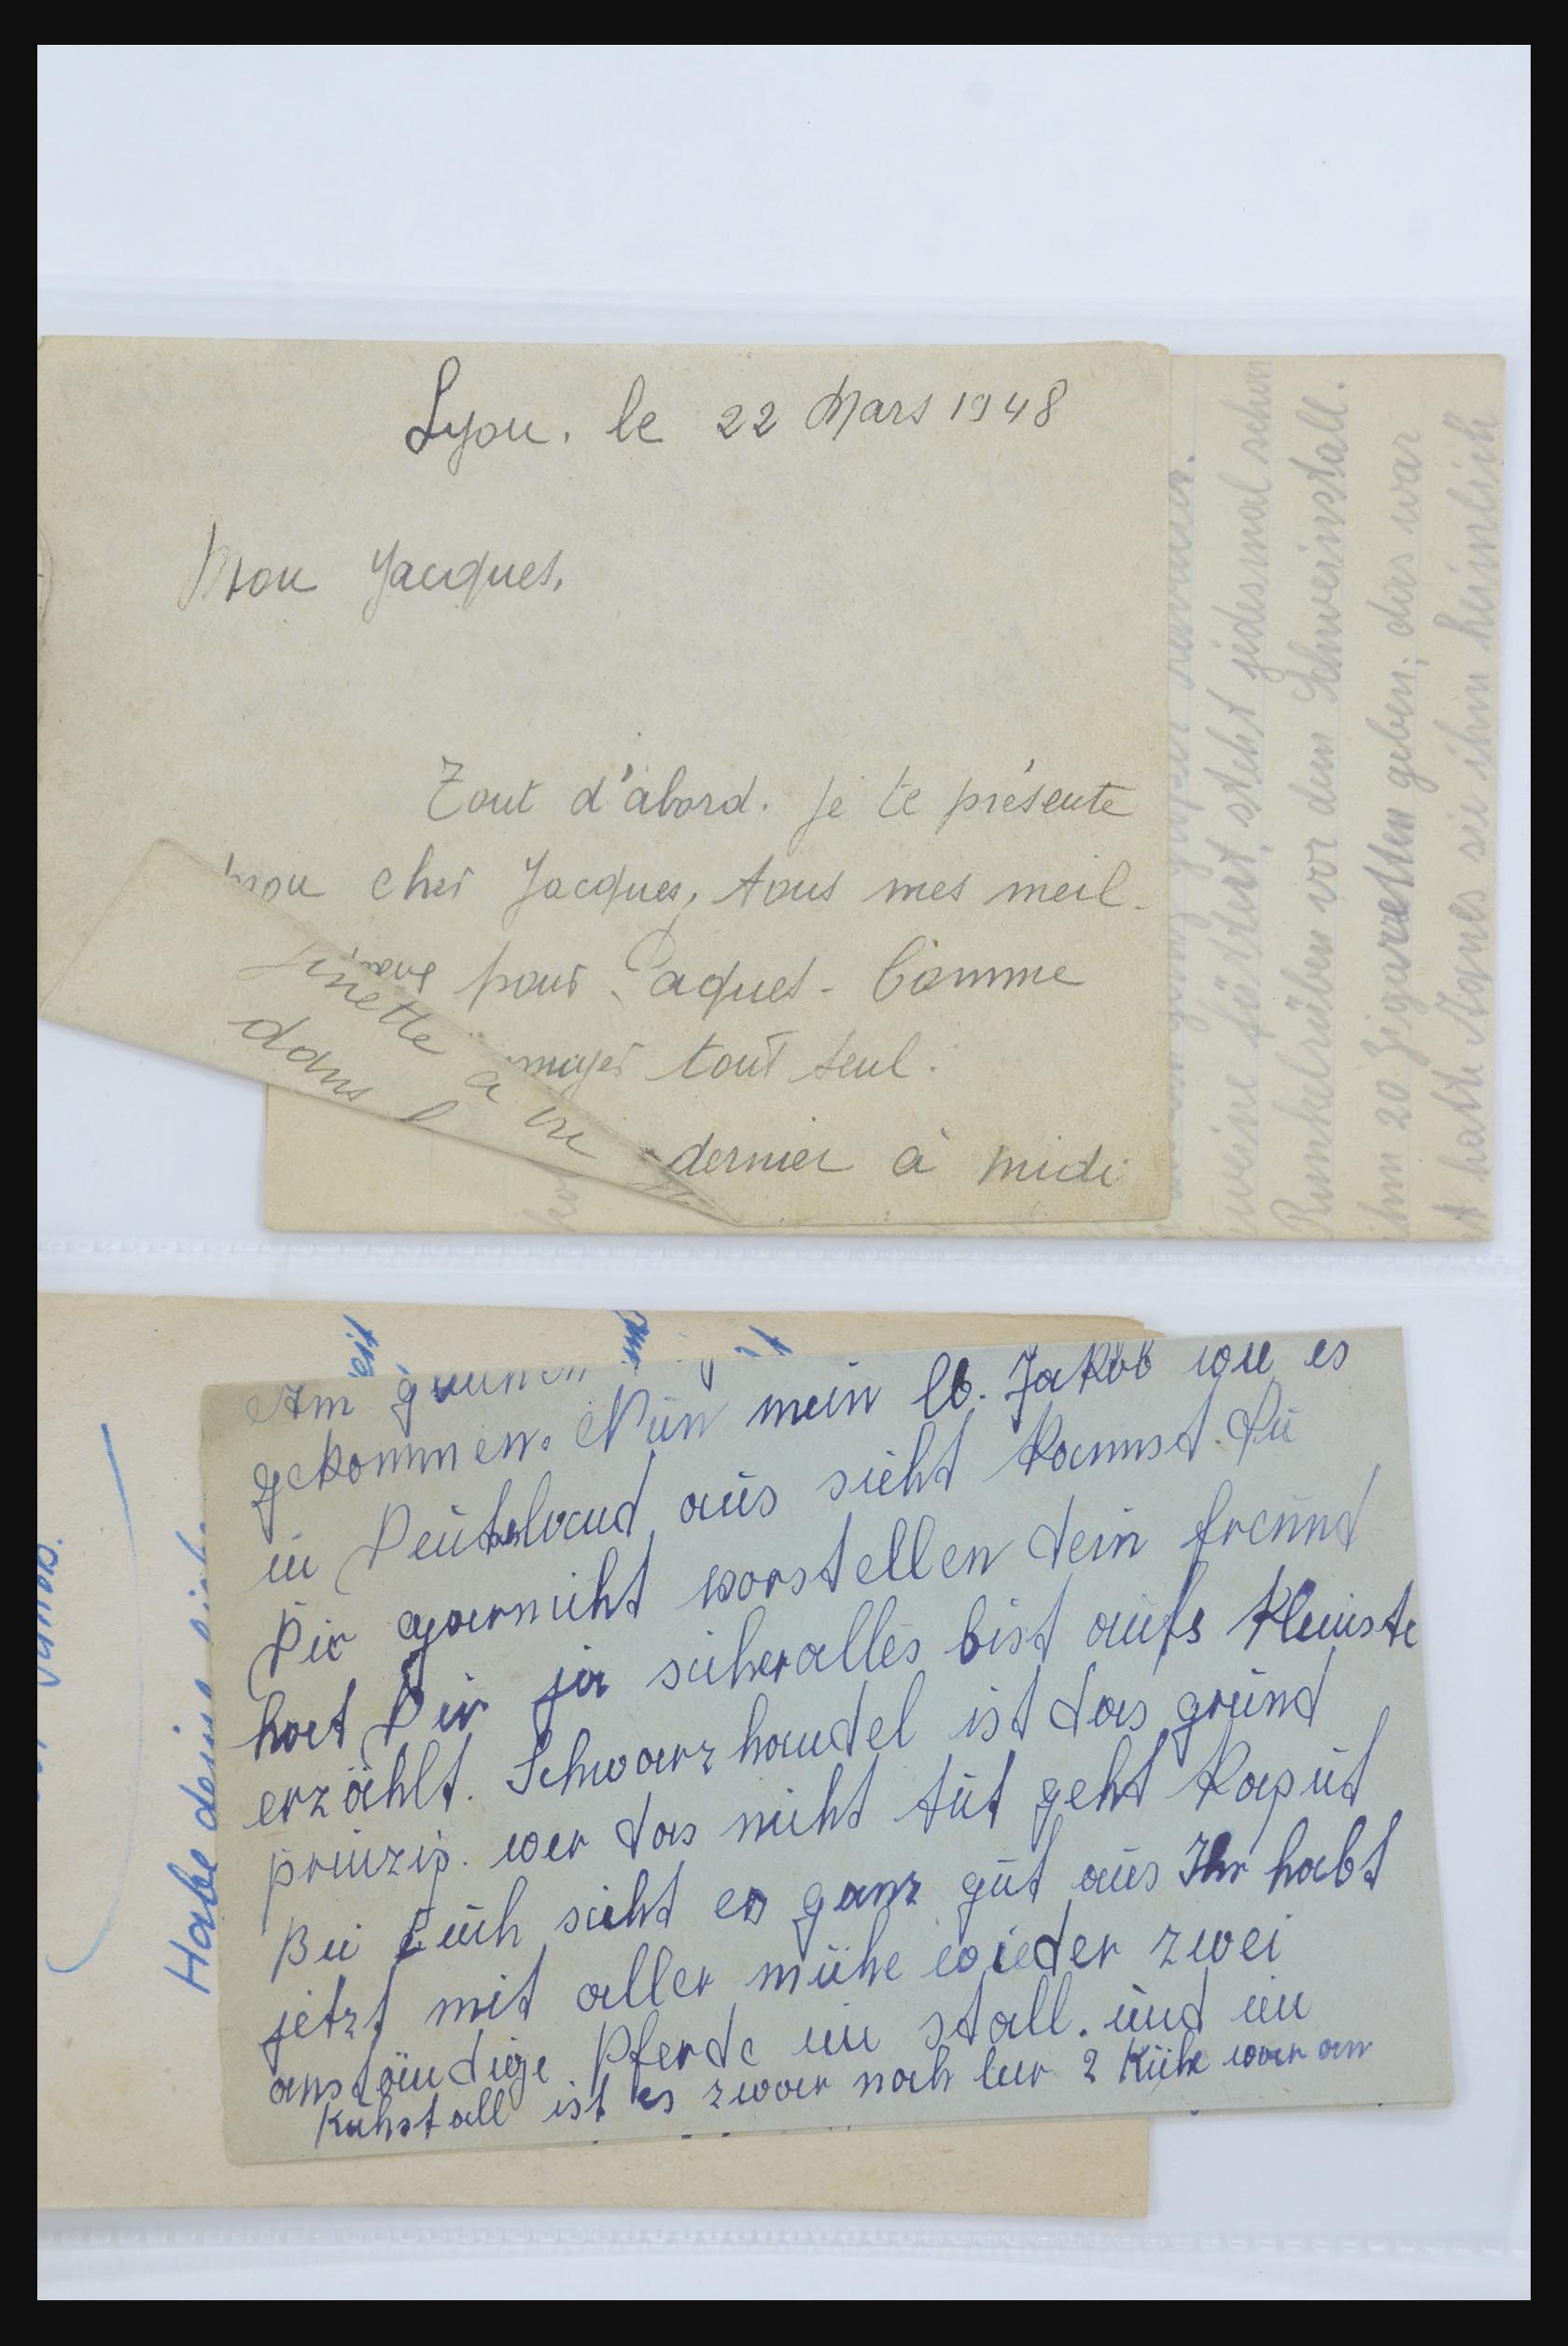 Lyon, le 22 Mars 1948
Mon Jacques,
Tout d'abord. je te présente
mon cher Jacques, tous mes meil-
pour Paques - Comme
tout seul.
dernier à midi
dans
jedesmal schon
Runkelrüben vor dem Schweinstall.
ihm 20 Zigaretten geben; das war
hatte Agnes sie ihm heimlich
Habe deine
Am
gekommen. Nun mein lb. Jakob wie es
in Deutschland aus sieht kannst Du
Dir garnicht vorstellen dein freund
hat Dir ja sicheralles bist aufs kleinste
erzählt. Schwarzhandel ist das grund
prinzip. wer das nicht tut geht kaput
Bei Euch sieht es ganz gut aus Ihr habt
jetzt mit aller mühe wieder zwei
anständige Pferde im stall. und im
Kuhstall ist es zwar noch leer 2 Kühe war an